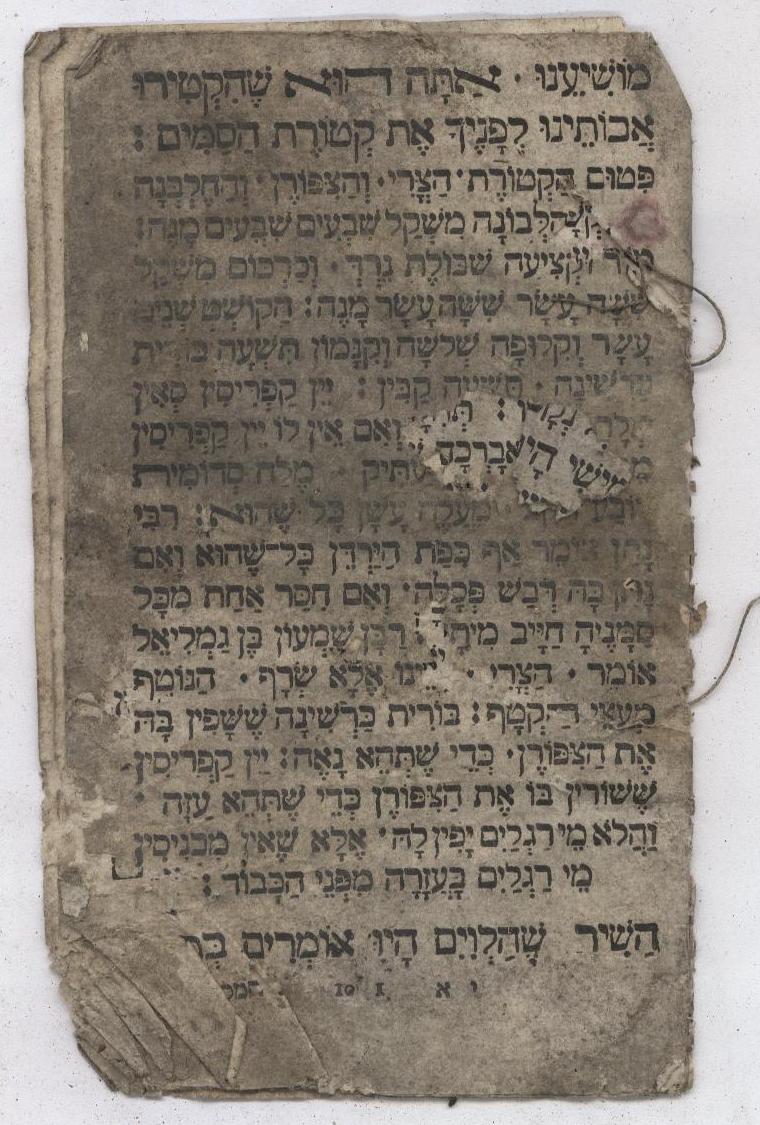 מוֹשִׁיעֵנוּ · אַתָּה הוּא שֶׁהִקְטִירוּ
אֲבוֹתֵינוּ לְפָנֶיךָ אֶת קְטוֹרֶת הַסַּמִּים :
פִּטּוּם הַקְּטוֹרֶת · הַצֳּרִי · וְהַצִּפּוֹרֶן · וְהַחֶלְבְּנָה
וְהַלְּבוֹנָה מִשְׁקַל שִׁבְעִים שִׁבְעִים מָנֶה :
מוֹר וּקְצִיעָה שִׁבּוֹלֶת נֵרְדְּ · וְכַרְכּוֹם מִשְׁקַל
שִׁשָּׁה עָשָׂר שִׁשָּׁה עָשָׂר מָנֶה : הַקּוֹשְׁטְ שְׁנֵים
עָשָׂר וְקִלּוּפָה שְׁלֹשָׁה וְקִנָּמוֹן תִּשְׁעָה בּוֹרִית
כַּרְשִׁינָה · תִּשְׁעָה קַבִּין : יֵין קַפְרִיסִין סְאִין
תְּלָת וְאִם אֵין לוֹ יֵין קַפְרִיסִין
עַתִּיק · מֶלַח סְדוֹמִית
רוֹבַע מַעֲלֶה עָשָׁן כָּל שֶׁהוּא : רַבִּי
נָתָן אוֹמֵר אַף כִּפַּת הַיַּרְדֵּן כָּל־שֶׁהוּא וְאִם
נָתַן בָּהּ דְּבַשׁ פְּסָלָהּ · וְאִם חִסַּר אַחַת מִכָּל
סַמָּנֶיהָ חַיָּיב מִיתָה : רַבָּן שִׁמְעוֹן בֶּן גַּמְלִיאֵל
אוֹמֵר · הַצֳּרִי · אֵינוֹ אֶלָּא שְׂרָף · הַנּוֹטֵף
מֵעֲצֵי הַקְּטָף : בּוֹרִית כַּרְשִׁינָה שֶׁשָּׁפִין בָּהּ
אֶת הַצִּפּוֹרֶן · כְּדֵי שֶׁתְּהֵא נָאָה : יֵין קַפְרִיסִין
שֶׁשּׁוֹרִין בּוֹ אֶת הַצִּפּוֹרֶן כְּדֵי שֶׁתְּהֵא עַזָּה ·
וַהֲלֹא מֵי רַגְלַיִם יָפִין לָהּ · אֶלָּא שֶׁאֵין מַכְנִיסִין
מֵי רַגְלַיִם בָּעֲזָרָה מִפְּנֵי הַכָּבוֹד :
הַשִּׁיר שֶׁהַלְוִיִּם הָיוּ אוֹמְרִים
י א 1 10